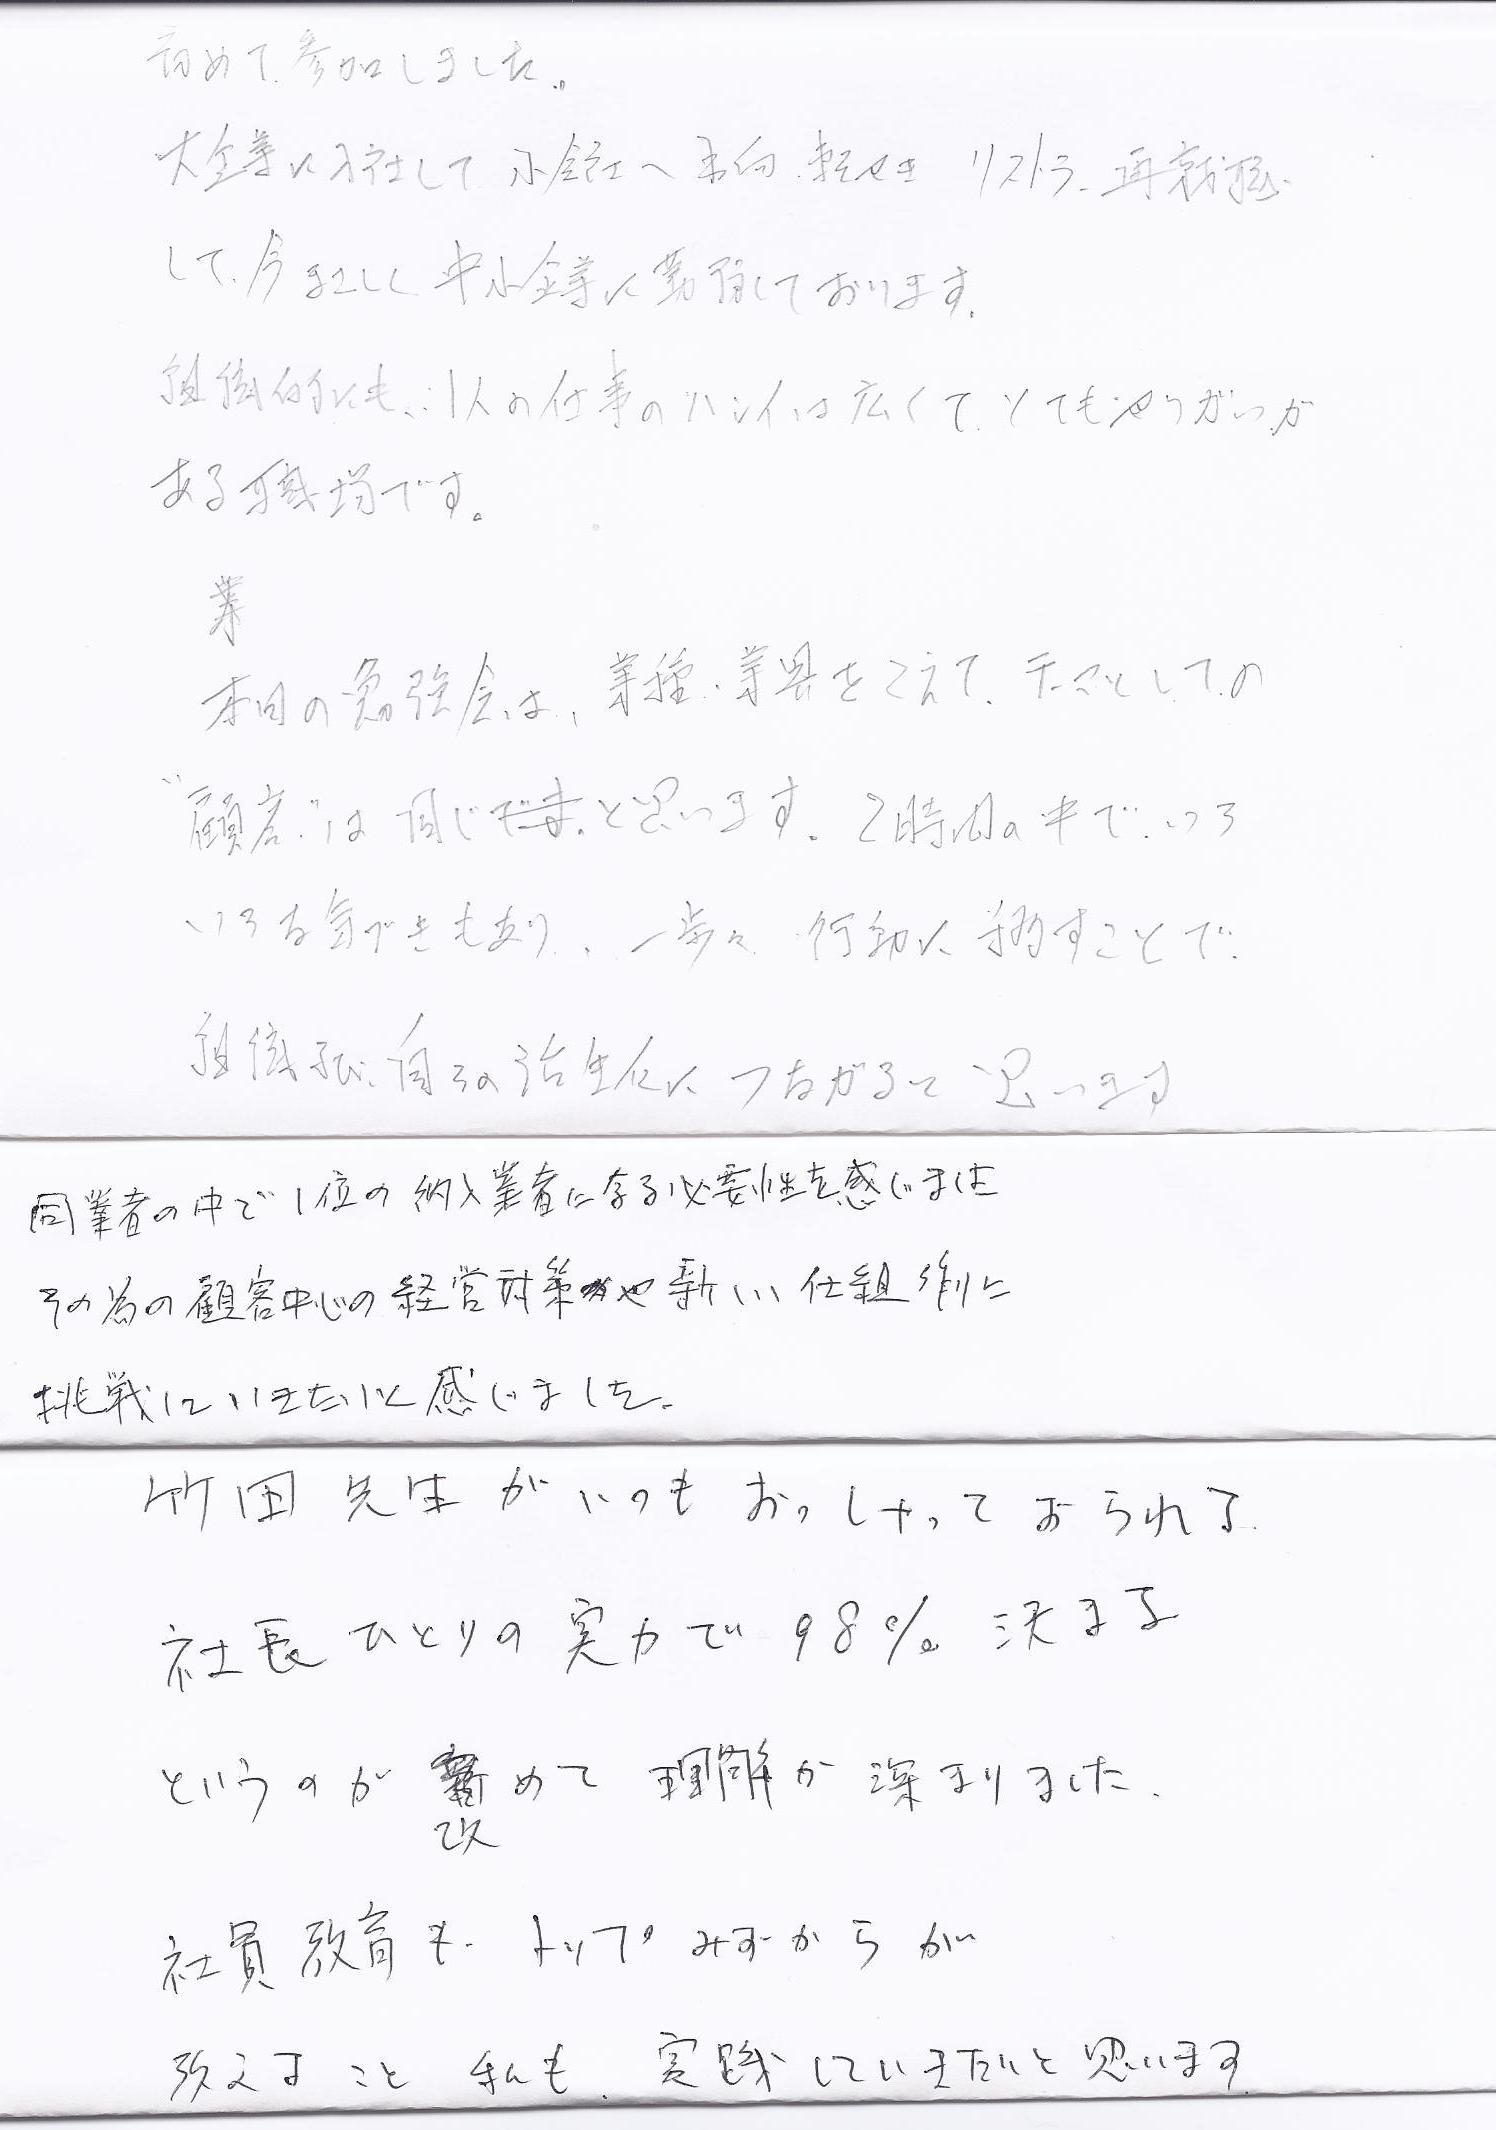 初めて参加しました。
大企業に入社して、小会社へ出向、転せき リストラ、再就職
して、今 中小企業に勤務しております。
組織的にも、1人の仕事のハンイは広くて、とてもやりがいが
ある職場です。
業
本日の勉強会は、業種・業界をこえて、テーマとしての
"顧客"は同じです。と思います。2時間の中で、いろ
いろな気づきもあり、一歩々 行動に移すことで、
組織及び、自らの活性化につながると思います
同業者の中で1位の納入業者になる必要性を感じました
その為の顧客中心の経営対策や新しい仕組作りに
挑戦していきたいと感じました。
竹田先生がいつもおっしゃっておられる
社長ひとりの実力で98%決まる
というのが改めて理解が深まりました。
社員教育も、トップみずからが
教えること 私も、実践していきたいと思います